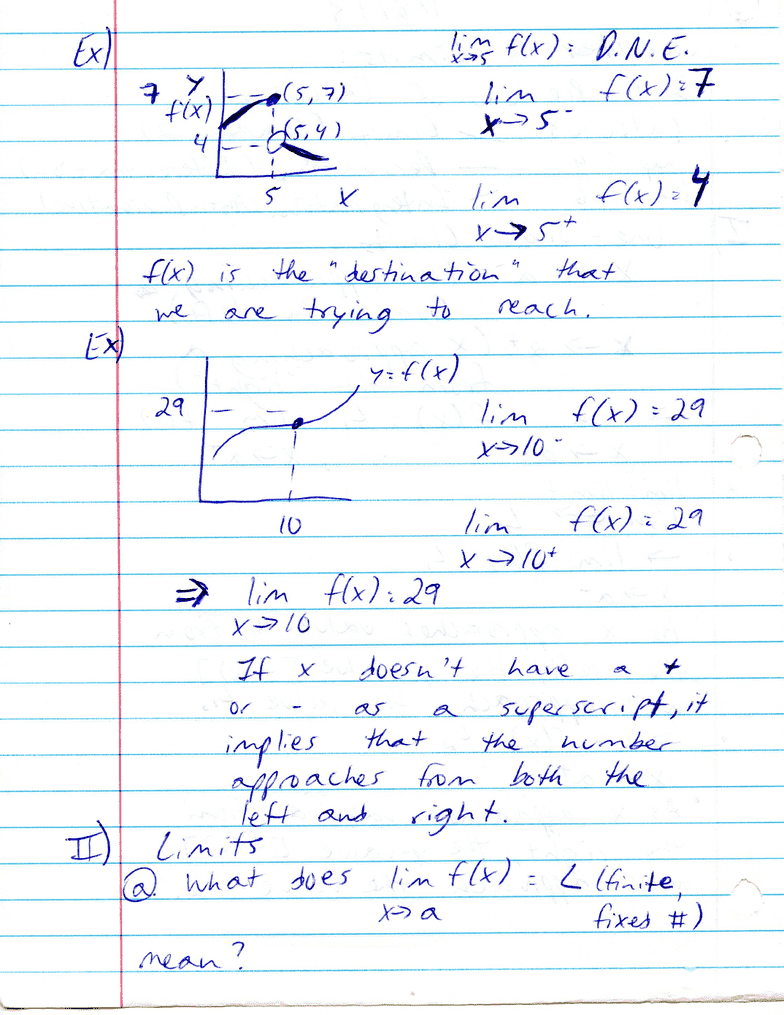 Ex)
lim f(x) = D.N.E.
x→5
7 y (5, 7)
f(x)
lim f(x) = 7
x→5⁻
4 (5, 4)
5 x
lim f(x) = 4
x→5⁺
f(x) is the "destination" that
we are trying to reach.
Ex)
y=f(x)
29
lim f(x) = 29
x→10⁻
10
lim f(x) = 29
x→10⁺
⇒ lim f(x) = 29
x→10
If x doesn't have a +
or - as a superscript, it
implies that the number
approaches from both the
left and right.
II) Limits
ⓐ What does lim f(x) = L (finite,
x→a fixes #)
mean?